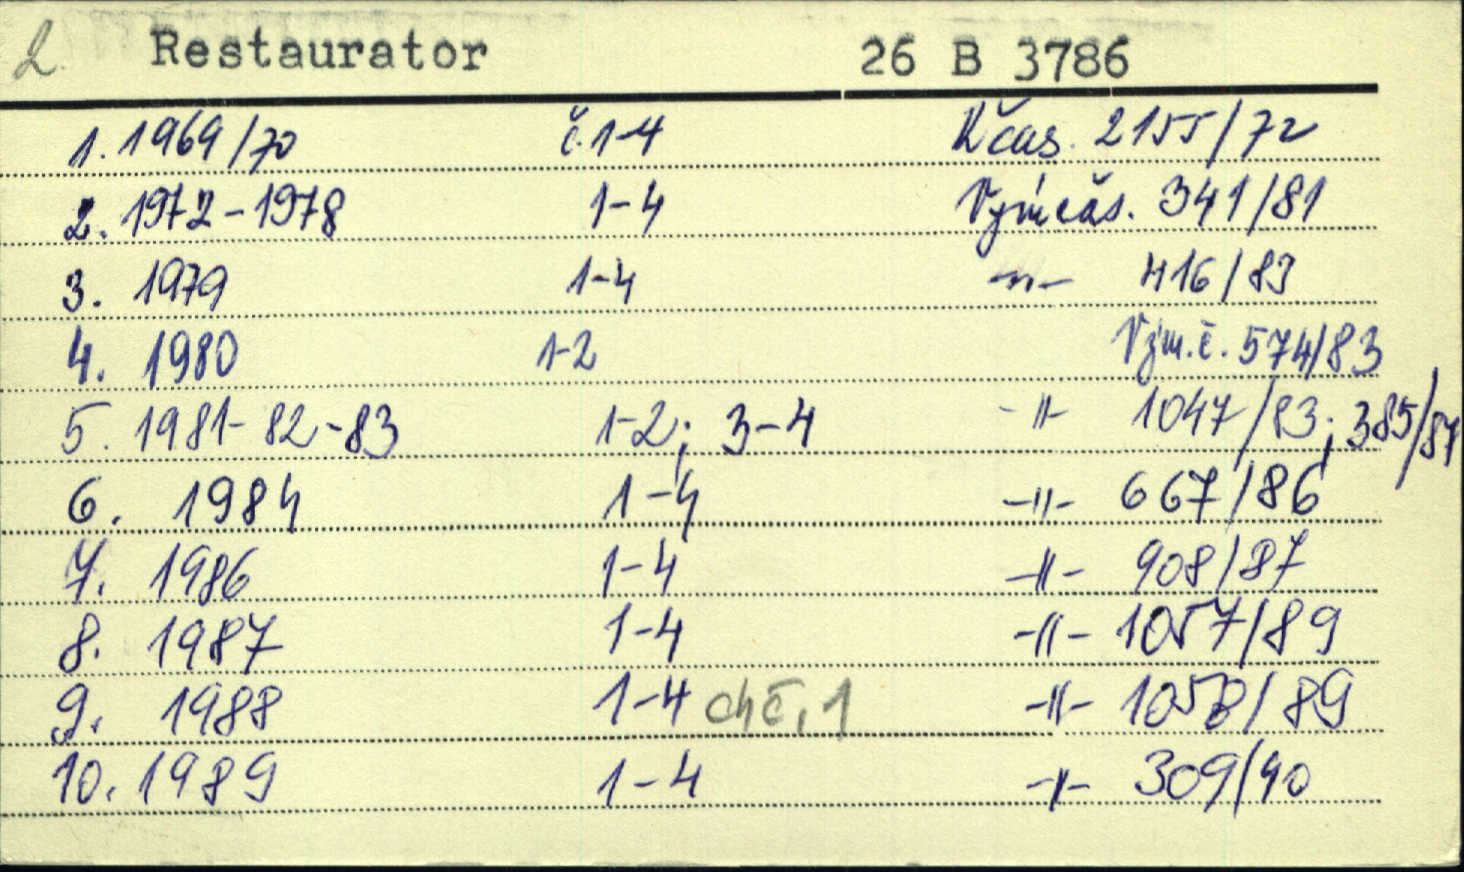 2 Restaurator 26 B 3786
1. 1969/70 č. 1-4 Kčas. 2155/72
2. 1972-1978 1-4 Vým čas. 341/81
3. 1979 1-4 -"- 416/83
4. 1980 1-2 Vým. č. 574/83
5. 1981-82-83 1-2; 3-4 -"- 1047/83; 385/87
6. 1984 1-4 -"- 667/86
7. 1986 1-4 -"- 908/87
8. 1987 1-4 -"- 1057/89
9. 1988 1-4 ch č. 1 -"- 1058/89
10. 1989 1-4 -"- 309/90